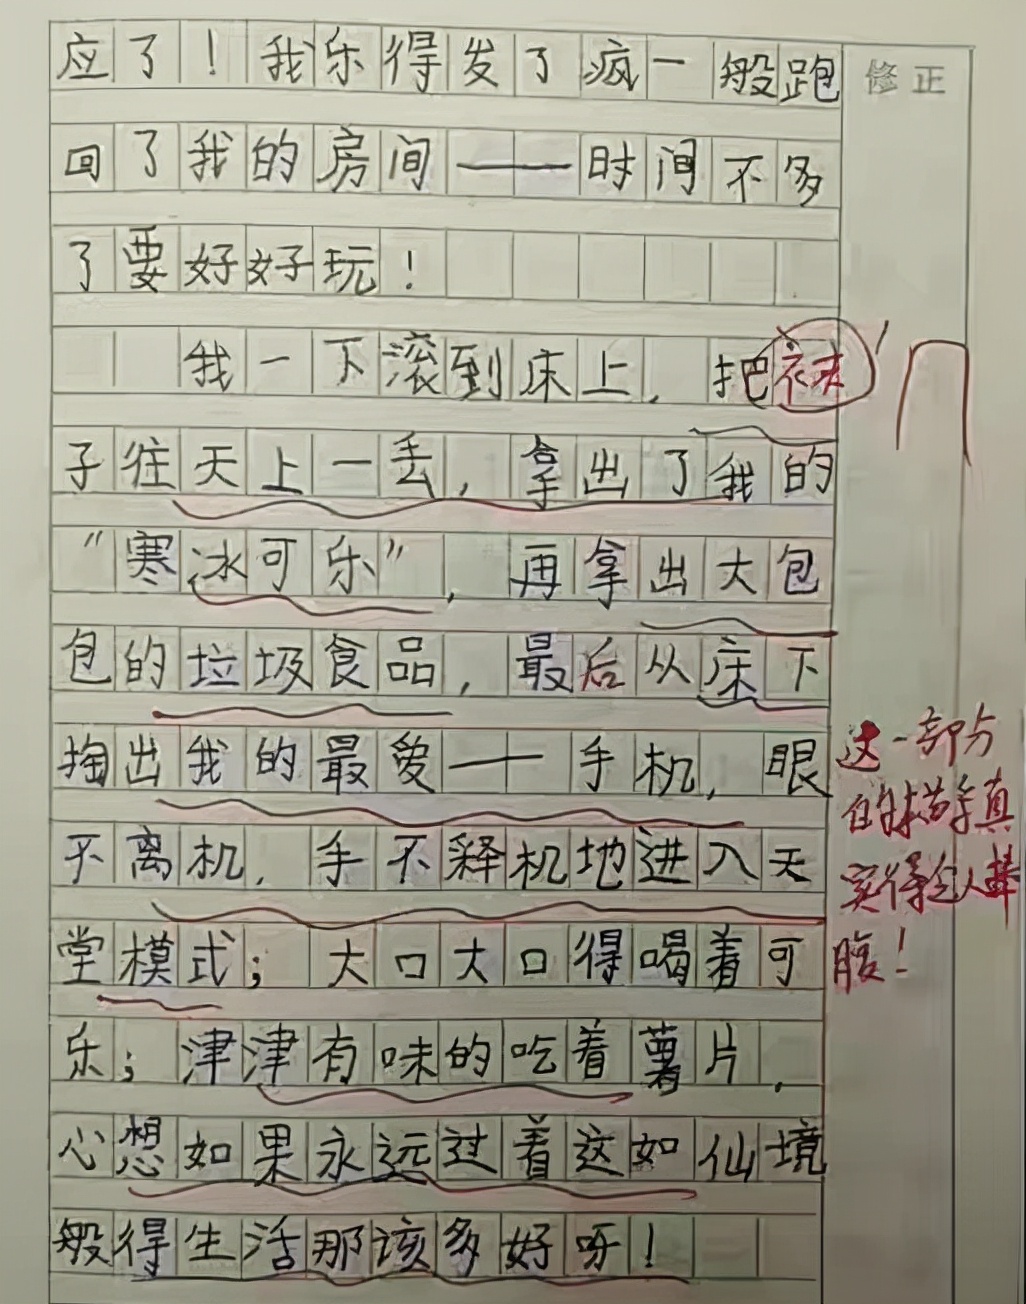 应了！我乐得发了疯一般跑
修正
回了我的房间——时间不多
了要好好玩！
我一下滚到床上，把袜
子往天上一丢，拿出了我的
“寒冰可乐”，再拿出大包
包的垃圾食品，最后从床下
掏出我的最爱——手机，眼
不离机，手不释机地进入天
堂模式；大口大口得喝着可
乐；津津有味的吃着薯片，
心想如果永远过着这如仙境
般得生活那该多好呀！
这一部分
的描写真
实得令人捧
腹！